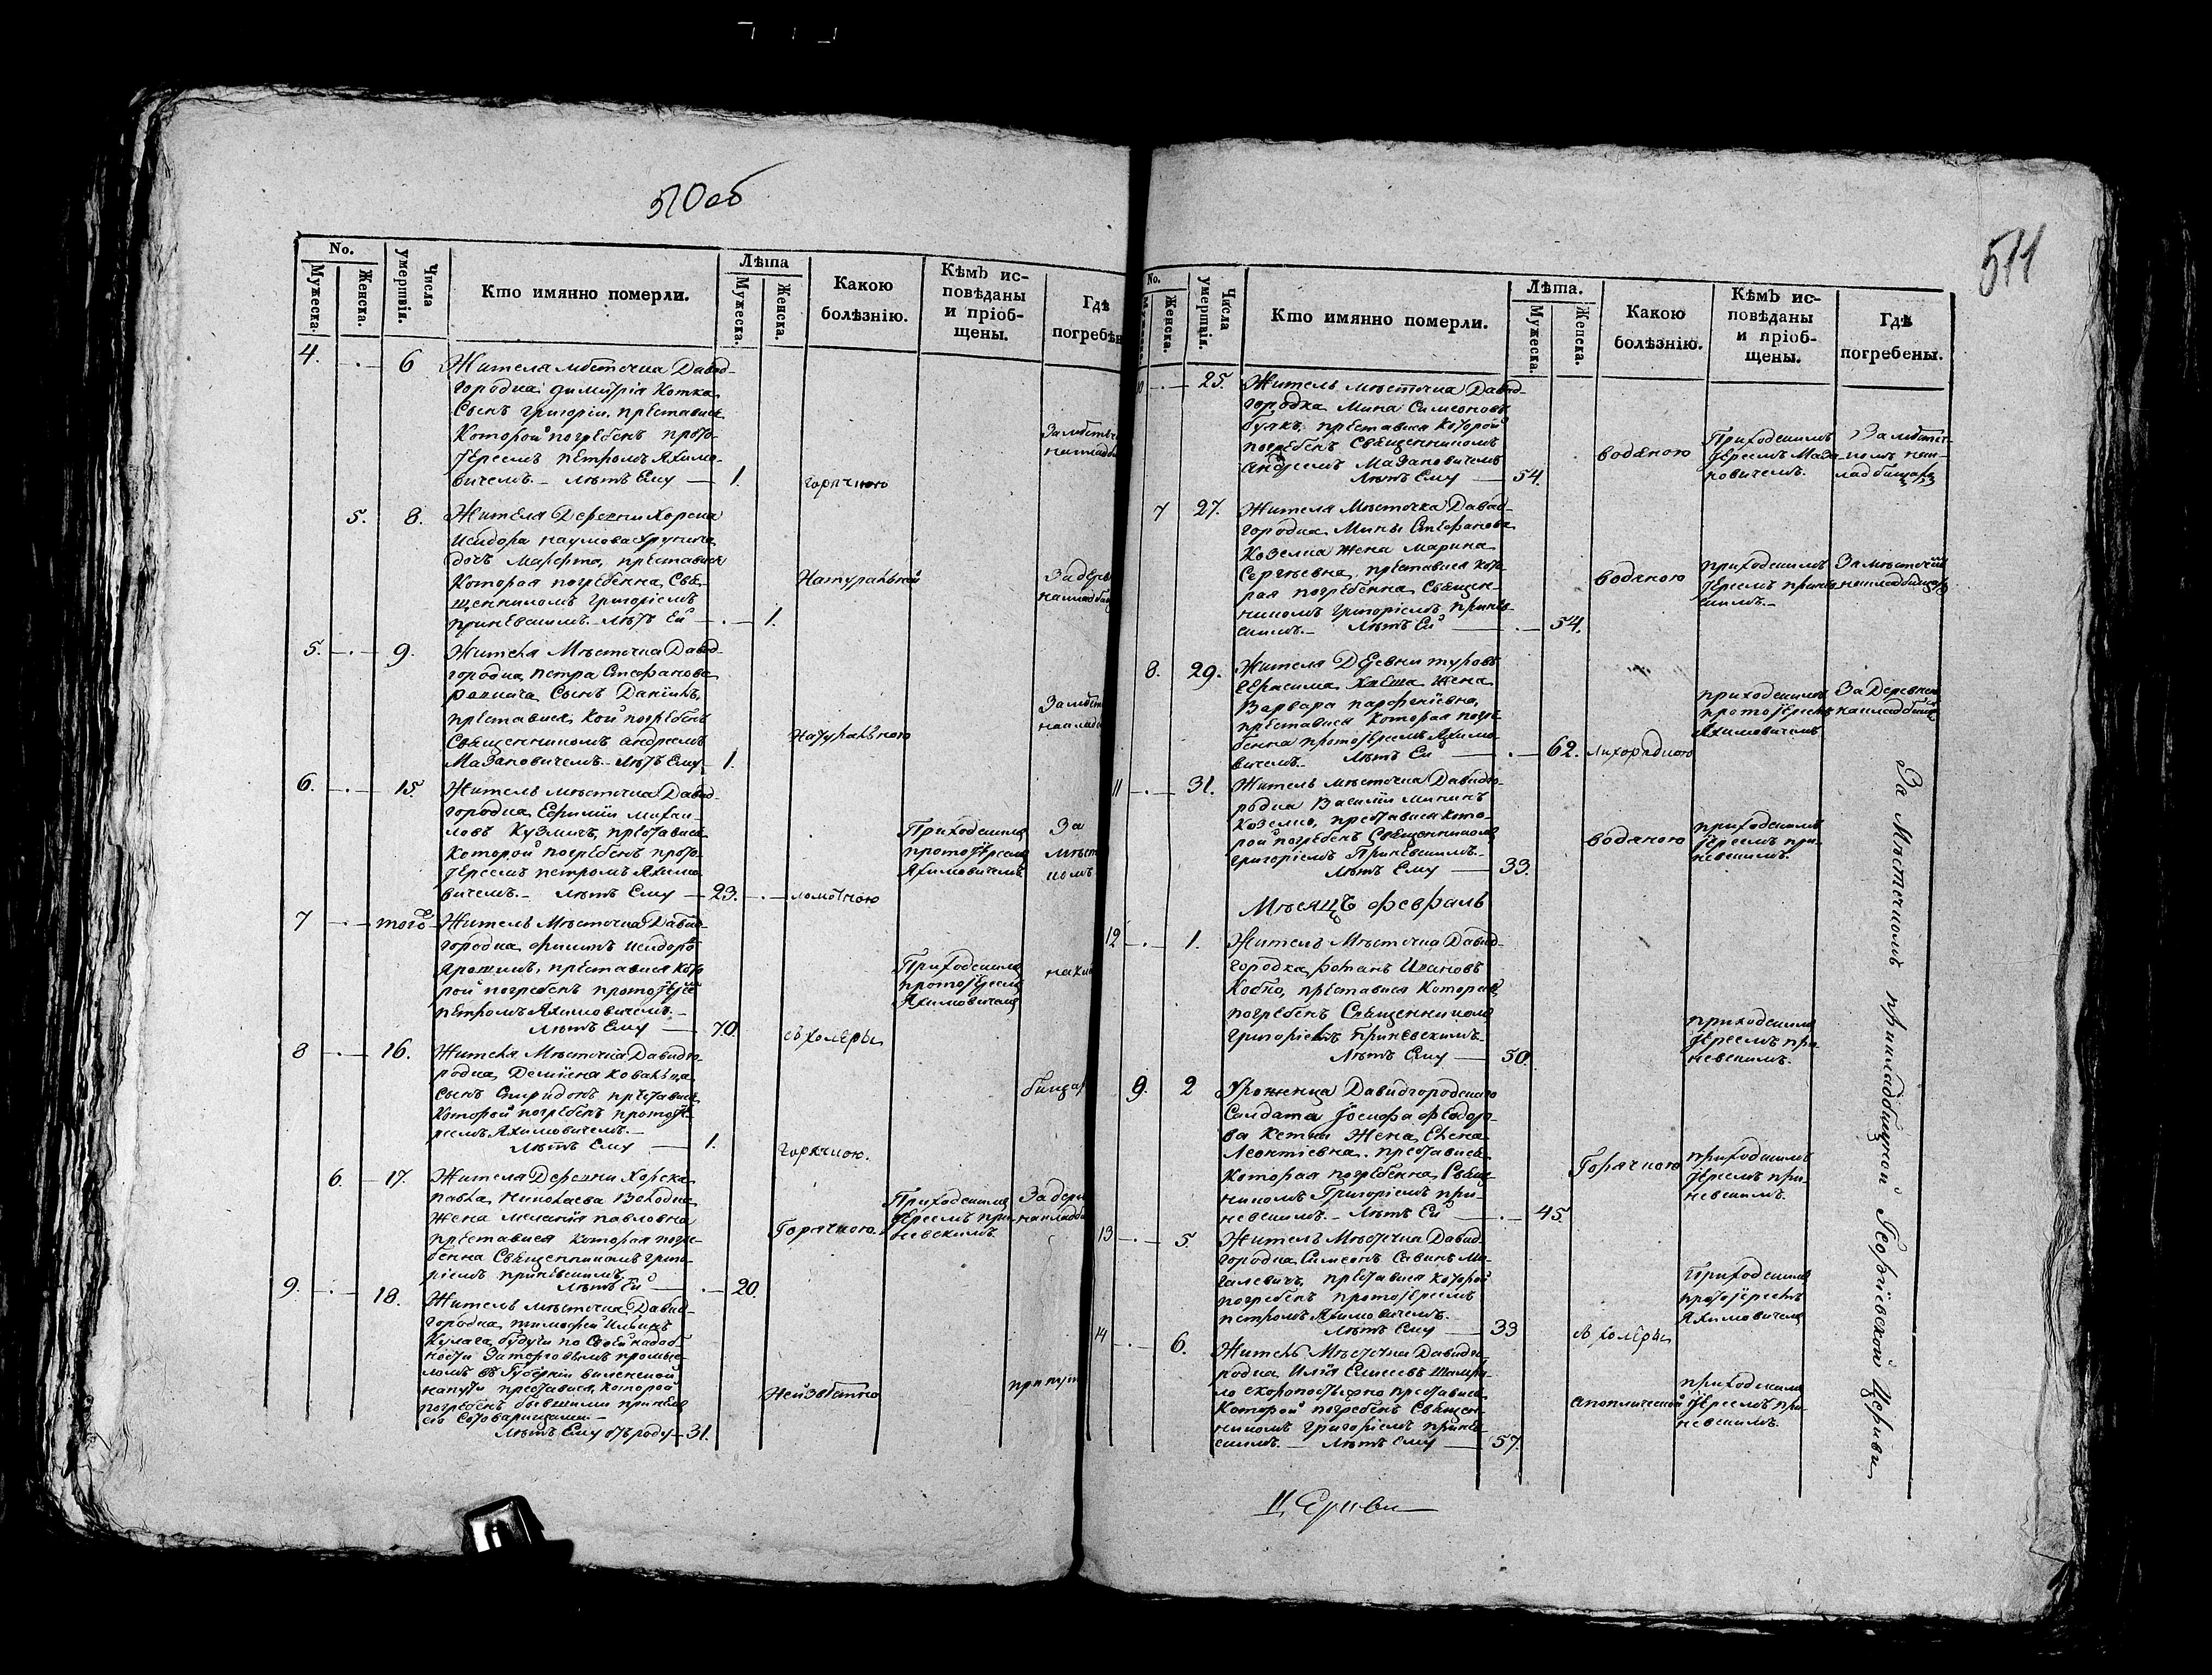 510 об
No.
Мужеска.
Женска.
Числа умертвія.
Кто имянно померли.
Лѣта
Мужеска.
Женска.
Какою болѣзнію.
Кѣмъ ис-
повѣданы
и пріоб-
щены.
Гдѣ
погребѣн
4. 6 Жителя мѣстечка Давид-
городка Димитрія Котка
Сынъ Григорій, преставися
Которой погребенъ прото-
Іереемъ Петромъ Яхимо-
вичемъ. – Лѣтъ Ему – 1. горячкою
За мѣстеч
на кладби
5. 8. Жителя Деревни Хорска
Исидора Наумова
дочь Марфа, преставися
Которая погребенна Свя-
щенникомъ Григоріемъ
Приневскимъ. – Лѣтъ Ей – 1.
Натуральной
За дерев
на кладби
5. 9. Жителя Мѣстечка Давид-
городка Петра Стефанова
Сынъ Даніилъ,
преставися, Кой погребенъ
Священникомъ Андреемъ
Мазановичемъ. – Лѣтъ Ему – 1.
Натуральною
За мѣст
на кладби
6. 15. Житель Мѣстечка Давид-
городка Ефимій Михаи-
ловъ Кузмичъ, преставися
Которой погребенъ прото-
Іереемъ Петромъ Яхимо-
вичемъ. – Лѣтъ Ему – 23. ломотною
Приходскимъ
протоіереемъ
Яхимовичемъ
За
мѣст
комъ
7 того Житель Мѣстечка Давид-
городка Филипъ Исидоро
преставися Кото
рой погребенъ протоІере
Петромъ Яхимовичемъ. –
Лѣтъ Ему – 70. съ холеры
Приходскимъ
протоіереемъ
Яхимовичемъ
на кла
8 16. Жителя Мѣстечка Давидго-
родка Деміяна Ковальца
Сынъ Спиридонъ преставися
Которой погребенъ протоІе-
реемъ Яхимовичемъ. –
Лѣтъ Ему – 1. горячкою.
бищах
6. 17. Жителя Деревни Хорска
Павла Николаева Володка
Жена Меланія Павловна
преставися Которая погре-
бенна Священникомъ Григо-
ріемъ Приневскимъ.
Лѣтъ Ей – 20.
Горячкою.
Приходскимъ
Іереемъ При-
невскимъ
За дерев
на кладби
9. 18. Житель мѣстечка Давид-
городка Тимофей Ильинъ
Кулага, будучи по Своей надоб-
ности За торговымъ промыс-
ломъ въ Губерніи Виленской
на пути преставися, Которой
погребенъ бывшими при нем
его Сотоварищами –
Лѣтъ Ему отъ роду – 31.
Неизвѣстно
при пути
511
No.
Женска.
Числа умертвія.
Кто имянно померли.
Лѣта.
Мужеска.
Женска.
Какою болѣзнію.
Кѣмъ ис-
повѣданы
и пріоб-
щены.
Гдѣ
погребены.
10 25. Житель мѣстечка Давид-
городка Мина Симеоновъ
преставися Которой
погребенъ Священникомъ
Андреемъ Мазановичемъ
Лѣтъ Ему – 54.
водяною
Приходскимъ
Іереемъ Маза-
новичемъ.
За мѣстеч-
комъ на к-
ладбищахъ
7 27. Жителя Мѣстечка Давид-
городка Мины Стефанова
Козелка Жена Марина
Сергѣевна, преставися Кото-
рая погребенна Священ-
никомъ Григоріемъ Принев-
скимъ. – Лѣтъ Ей – 54.
водяною
приходскимъ
Іереемъ Принев
скимъ. –
За мѣстечкомъ
на кладбищахъ
8. 29. Жителя Деревни Туровъ
Герасима Жена
Варвара Парфеніевна,
преставися Которая погре-
бенна протоІереемъ Яхимо-
вичемъ. Лѣтъ Ей – 62. лихорадкою
приходскимъ
протоіереемъ
Яхимовичемъ
За Деревнею
на кладбищѣ
11 31. Житель Мѣстечка Давидго-
родка Василій Мининъ
Козелко, преставися Кото-
рой погребенъ Священникомъ
Григоріемъ Приневскимъ. –
Лѣтъ Ему – 33.
водяною
приходскимъ
Іереемъ При-
невскимъ.
Мѣсяцъ Февраль
12 1. Житель Мѣстечка Давид-
городка Романъ Ивановъ
преставися Которой
погребенъ Священникомъ
Григоріемъ Приневскимъ. –
Лѣтъ Ему – 50
приходскимъ
Іереемъ При-
невскимъ.
9. 2 Уроженца Давидгородскаго
Солдата Іосифа Федоро-
ва Жена Елена
Леонтіевна, преставися
Которая погребенна Священ
никомъ Григоріемъ При-
невскимъ. – Лѣтъ Ей – 45
Горячкою
приходскимъ
Іереемъ При-
невскимъ.
13 5. Житель Мѣстечка Давид-
городка Симеонъ Савинъ
преставися Которой
погребенъ протоІереемъ
Петромъ Яхимовичемъ. –
Лѣтъ Ему – 33 съ холеры
Приходскимъ
протоіереемъ
Яхимовичемъ
14 6. Житель Мѣстечка Давидго-
родка Илія Елисеевъ
скоропостижно преставися
Которой погребенъ Священ-
никомъ Григоріемъ Принев-
скимъ. – Лѣтъ Ему – 57.
апоплической
приходскимъ
Іереемъ При-
невскимъ.
За Мѣстечкомъ при кладбищной Георгіевской Церкви
Церкви